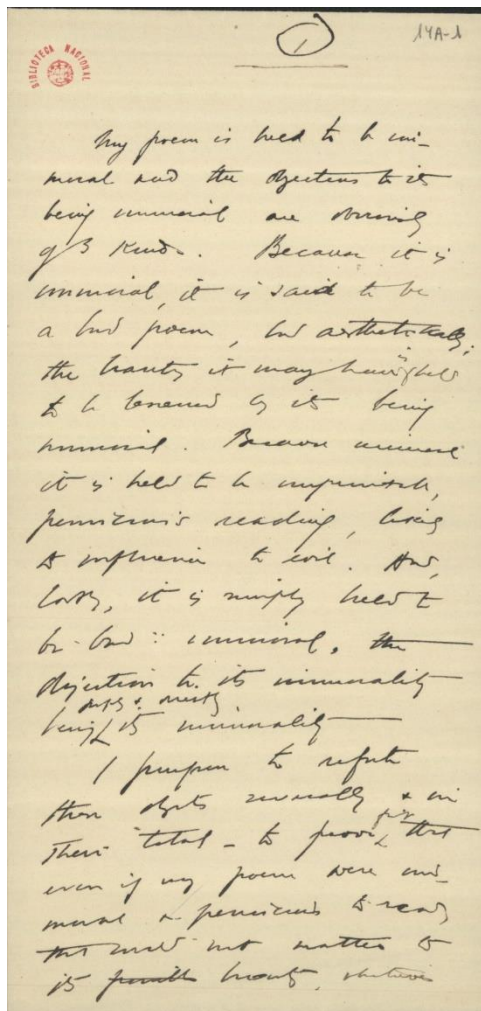 1
14A-1
BIBLIOTECA NACIONAL
My poem is held to be im-
moral and the objections to its
being immoral are obviously
of 3 kinds. Because it is
immoral, it is said to be
a bad poem, bad aesthetically;
the beauty it may have is held
to be lessened by its being
immoral. Because immoral
it is held to be
pernicious reading,
to influence to evil. And,
lastly, it is simply held to
be bad :: immoral, the
objection to its immorality
being simply & merely its immorality
I propose to refute
these objects severally & in
their total - to prove first that
even if my poem were im-
moral & pernicious to read
that would not matter to
its beauty,